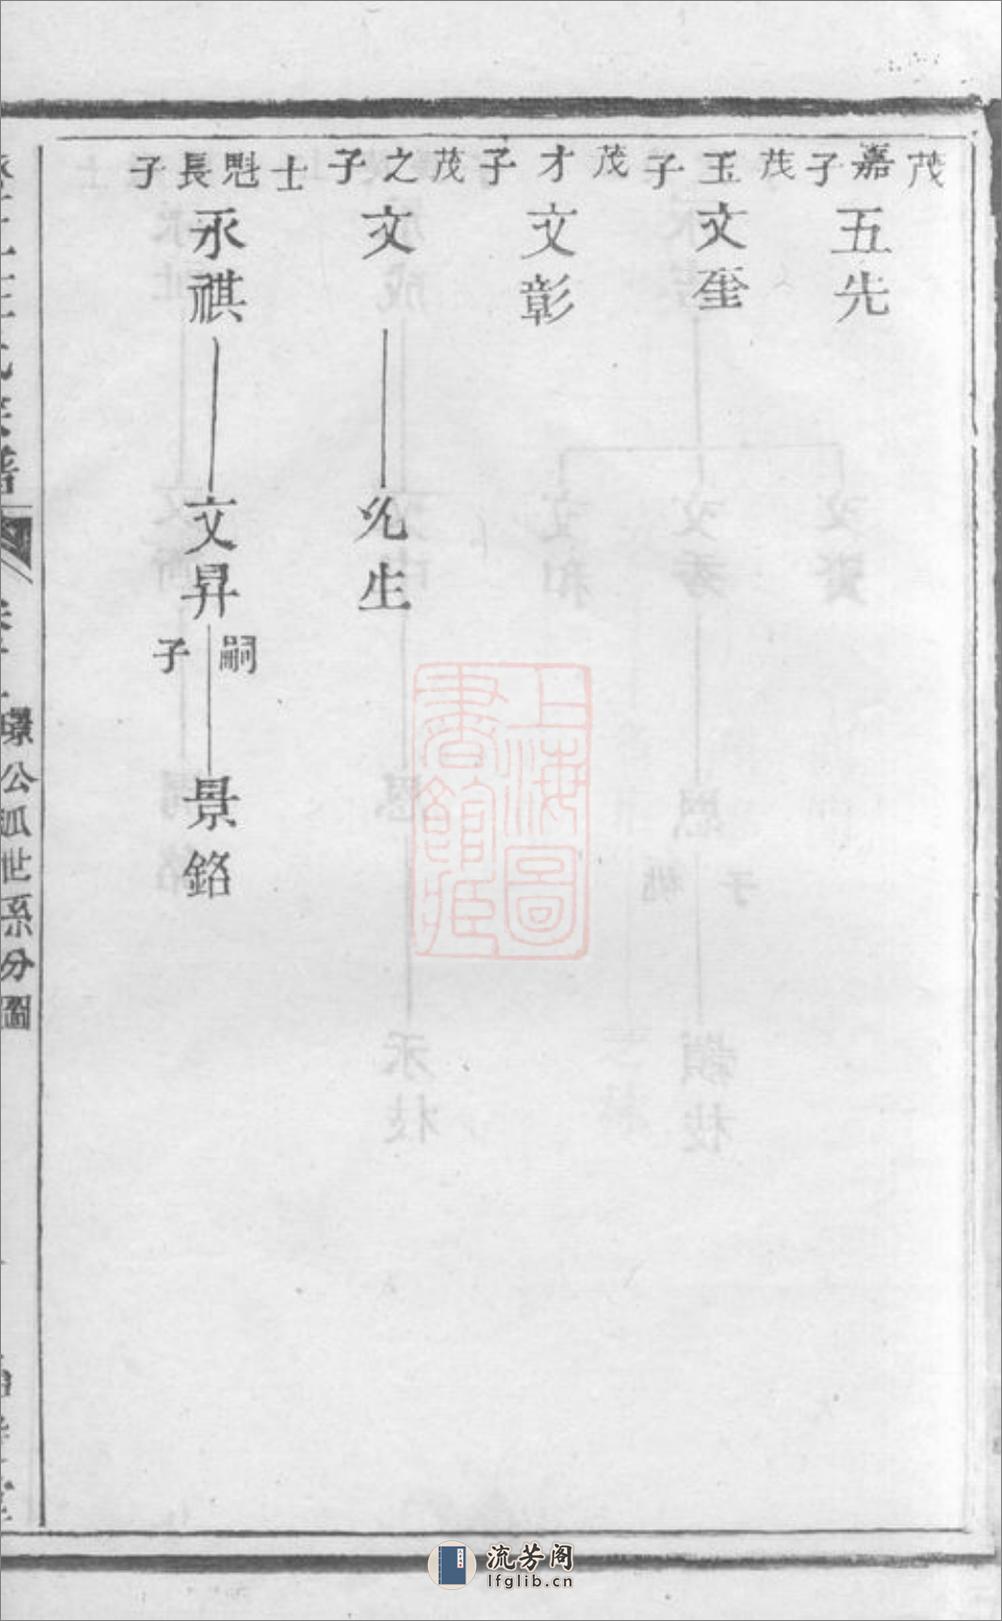 茂嘉子
五先
茂玉子
文奎
茂才子
文彰
茂之子
文
允生
士魁長子
永祺
文昇
嗣子
景銘
璟公派世系分圖
上海圖書館藏
流芳阁
lfglib.cn